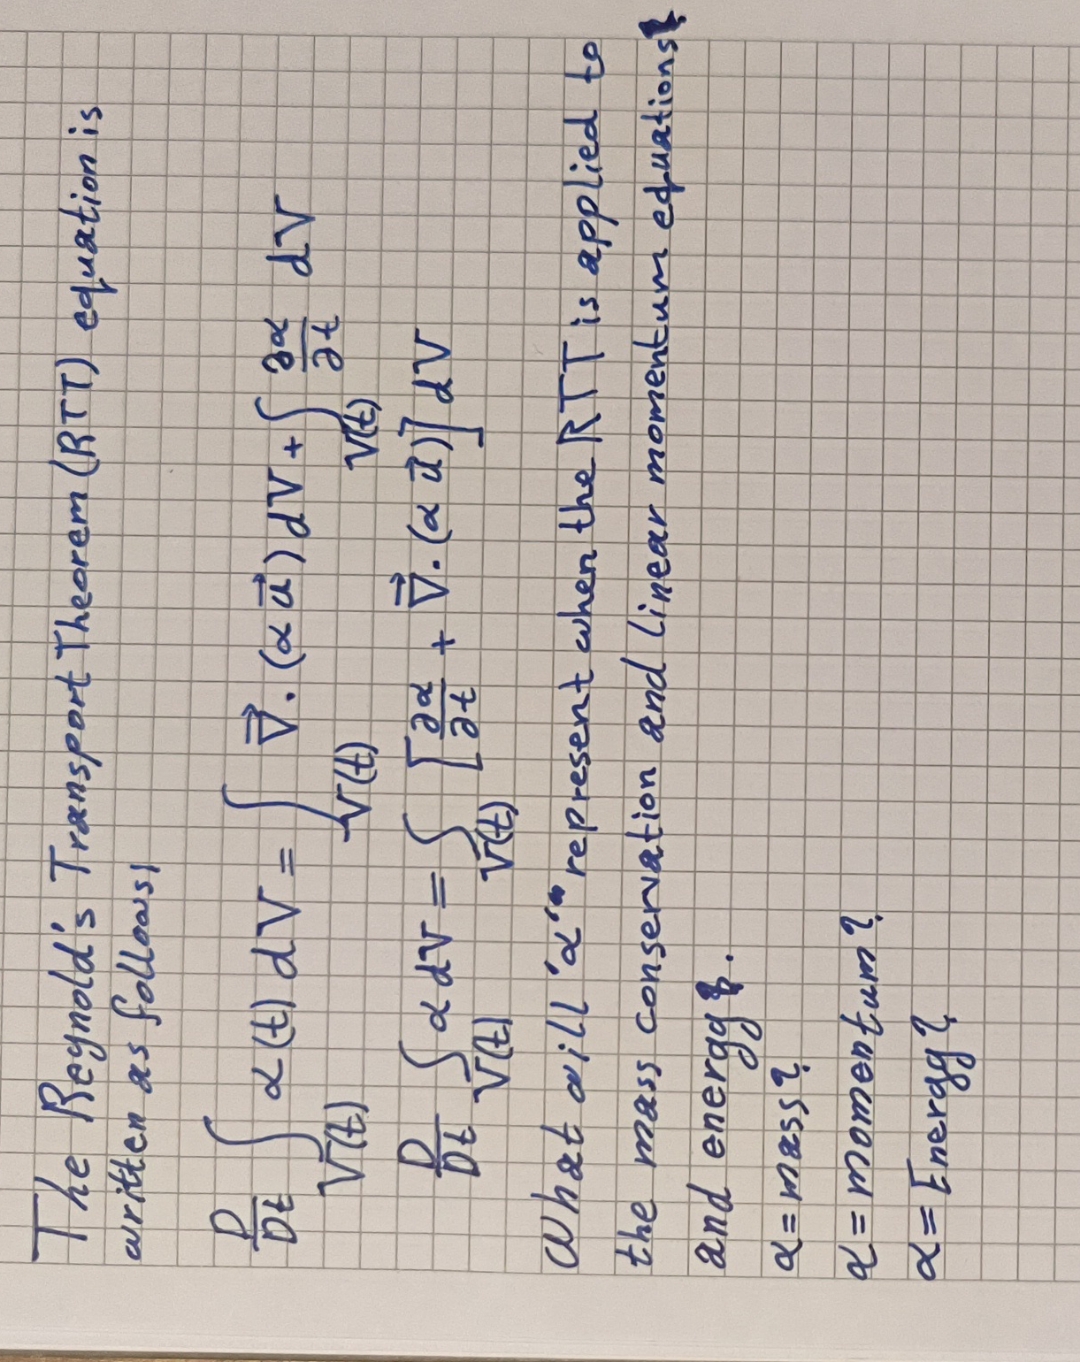 The Reynold's Transport Theorem (RTT) equation is
written as follows,
D/Dt ∫V(t) α(t) dV = ∫V(t) ∇⃗.(α u⃗) dV + ∫V(t) ∂α/∂t dV
D/Dt ∫V(t) α dV = ∫V(t) [∂α/∂t + ∇⃗.(α u⃗)] dV
What will 'α' represent when the RTT is applied to
the mass conservation and linear momentum equations
and energy.
α = mass?
α = momentum?
α = Energy?